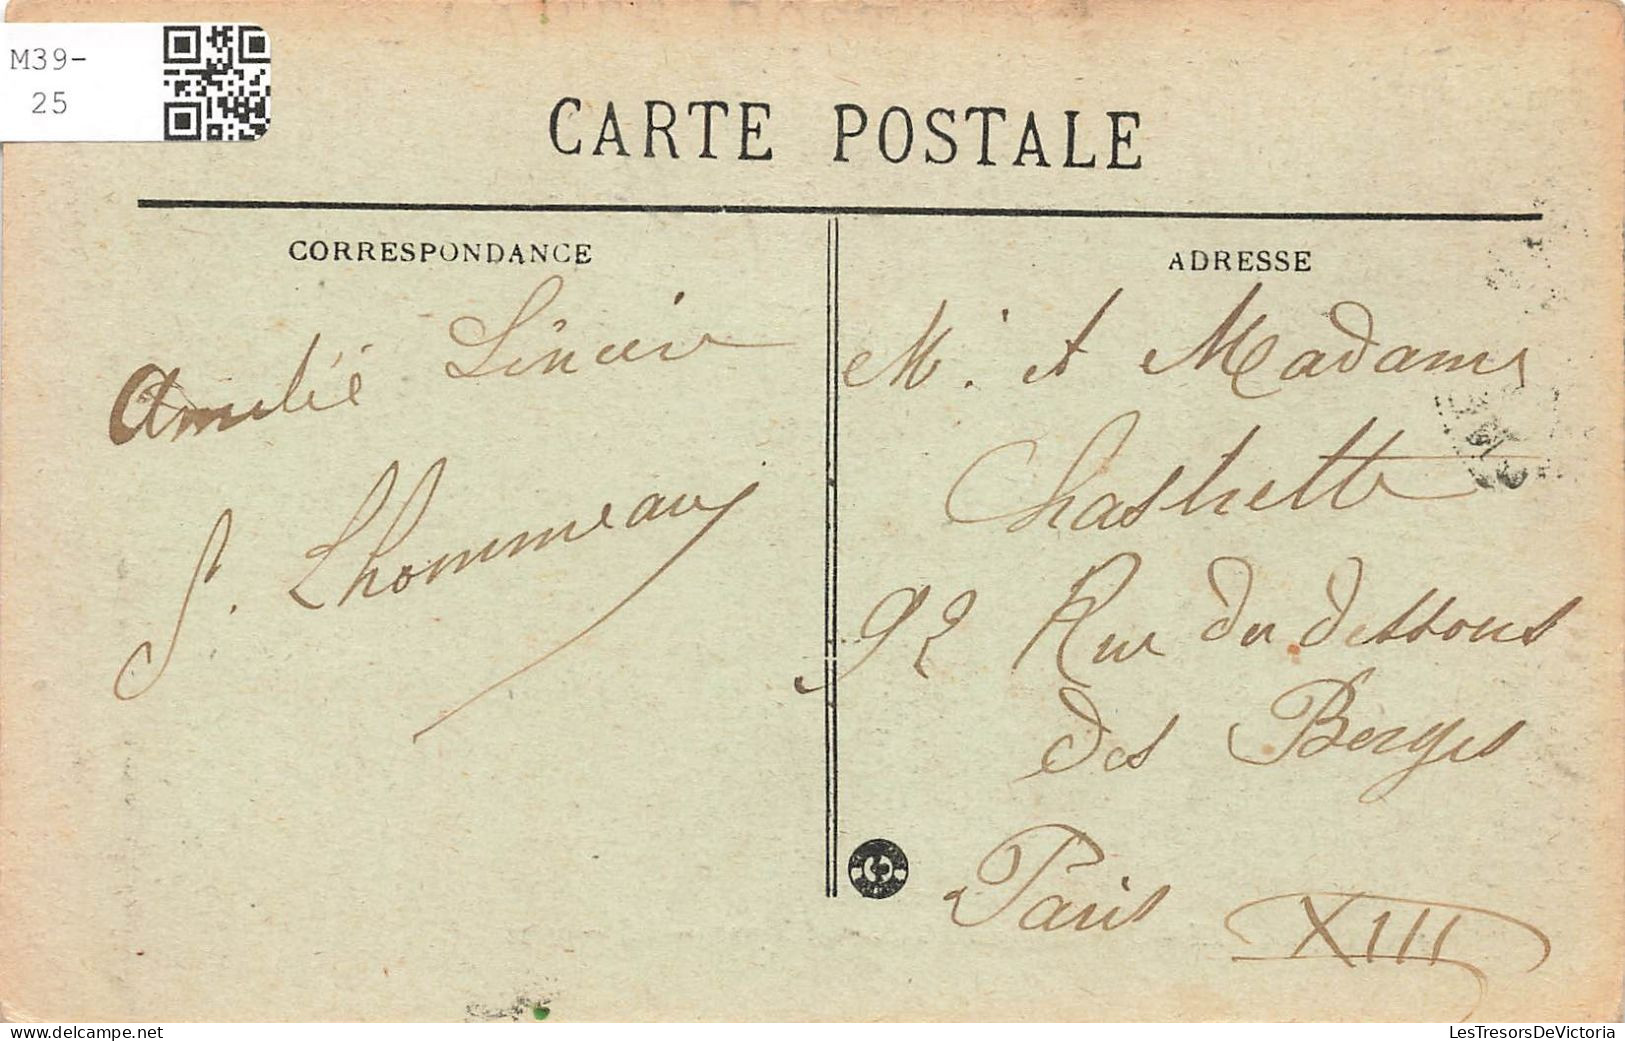 M39-
25
CARTE POSTALE
CORRESPONDANCE
Amitié Sincère
S. Lhommeau
ADRESSE
Mr et Madame
92 Rue du dessous
des Berges
Paris XIII
delcampe.net
LesTresorsDeVictoria